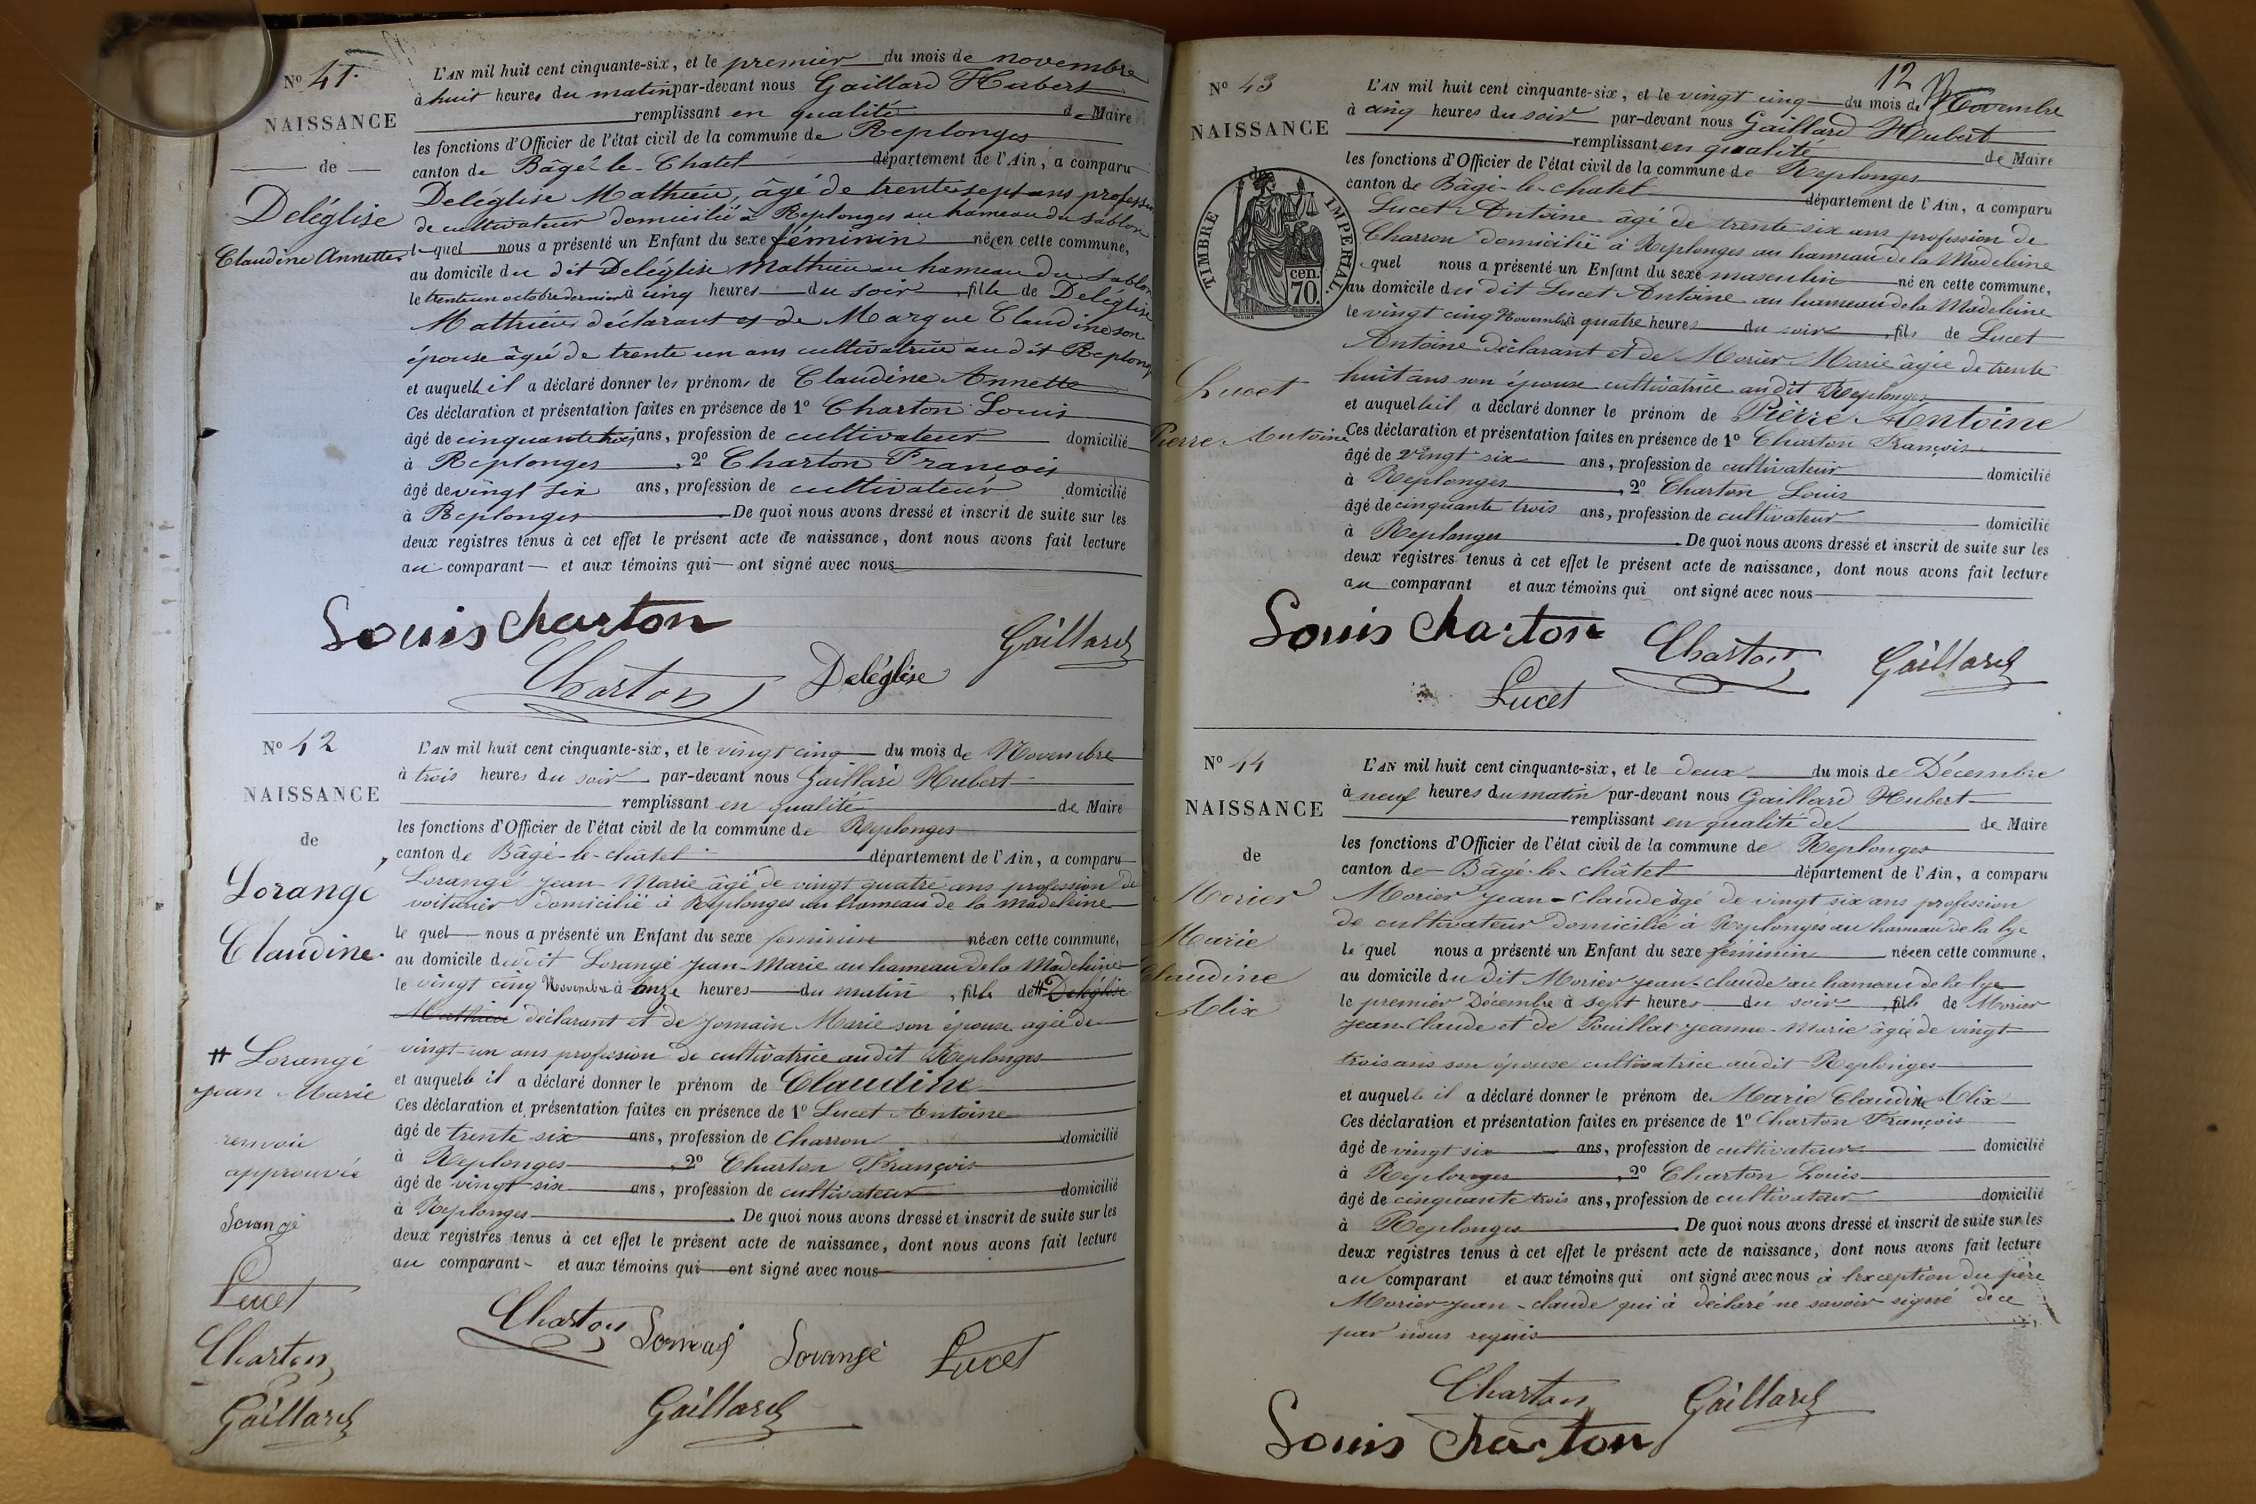 Nº 41.
NAISSANCE
de
Deléglise
Claudine Annette.
L'AN mil huit cent cinquante-six, et le premier du mois de novembre
à huit heures du matin par-devant nous Gaillard Hubert
remplissant en qualité de Maire
les fonctions d'Officier de l'état civil de la commune de Replonges
canton de Bâgé-le-Chatel département de l'Ain, a comparu
Deléglise Mathieu, âgé de trente sept ans profession
de cultivateur domicilié à Replonges au hameau du Sablon
le quel nous a présenté un Enfant du sexe féminin née en cette commune,
au domicile du dit Deléglise Mathieu au hameau du Sablon
le trente un octobre dernier à cinq heures du soir, fille de Deléglise
Mathieu déclarant et de Margue Claudine son
épouse âgée de trente un ans cultivatrice au dit Replonges
et auquelle il a déclaré donner les prénoms de Claudine Annette
Ces déclaration et présentation faites en présence de 1º Charton Louis
âgé de cinquante trois ans, profession de cultivateur domicilié
à Replonges, 2º Charton François
âgé de vingt six ans, profession de cultivateur domicilié
à Replonges. De quoi nous avons dressé et inscrit de suite sur les
deux registres tenus à cet effet le présent acte de naissance, dont nous avons fait lecture
au comparant et aux témoins qui ont signé avec nous
Louis Charton
Charton Deléglise Gaillard
Nº 42
NAISSANCE
de
Lorangé
Claudine.
L'AN mil huit cent cinquante-six, et le vingt cinq du mois de Novembre
à trois heures du soir par-devant nous Gaillard Hubert
remplissant en qualité de Maire
les fonctions d'Officier de l'état civil de la commune de Replonges
canton de Bâgé-le-châtel département de l'Ain, a comparu
Lorangé Jean-Marie âgé de vingt quatre ans profession de
voiturier domicilié à Replonges au hameau de la Madeleine
le quel nous a présenté un Enfant du sexe feminin née en cette commune,
au domicile du dit Lorangé Jean-Marie au hameau de la Madeleine
le vingt cinq Novembre à onze heures du matin, fille de # Deléglise
Mathieu déclarant et de Jomain Marie son épouse agée de
vingt-un ans profession de cultivatrice audit Replonges
et auquelle il a déclaré donner le prénom de Claudine
Ces déclaration et présentation faites en présence de 1º Lucet Antoine
âgé de trente six ans, profession de Charron domicilié
à Replonges, 2º Charton François
âgé de vingt-six ans, profession de cultivateur domicilié
à Replonges. De quoi nous avons dressé et inscrit de suite sur les
deux registres tenus à cet effet le présent acte de naissance, dont nous avons fait lecture
au comparant et aux témoins qui ont signé avec nous
# Lorangé
Jean Marie
renvoi
approuvée
Lorangé
Lucet
Charton
Gaillard
Charton Lorangé Lucet
Gaillard
12
Nº 43
NAISSANCE
de
TIMBRE IMPERIAL
70 cen.
Lucet
Pierre Antoine
L'AN mil huit cent cinquante-six, et le vingt cinq du mois de Novembre
à cinq heures du soir par-devant nous Gaillard Hubert
remplissant en qualité de Maire
les fonctions d'Officier de l'état civil de la commune de Replonges
canton de Bâgé-le-chatel département de l'Ain, a comparu
Lucet Antoine âgé de trente six ans profession de
Charron domicilié à Replonges au hameau de la Madeleine
quel nous a présenté un Enfant du sexe masculin né en cette commune,
au domicile du dit Lucet Antoine au hameau de la Madeleine
le vingt cinq Novembre à quatre heures du soir, fils de Lucet
Antoine déclarant et de Morier Marie âgée de trente
huit ans son épouse cultivatrice audit Replonges
et auquel il a déclaré donner le prénom de Pierre Antoine
Ces déclaration et présentation faites en présence de 1º Charton François
âgé de vingt six ans, profession de cultivateur domicilié
à Replonges, 2º Charton Louis
âgé de cinquante trois ans, profession de cultivateur domicilié
à Replonges. De quoi nous avons dressé et inscrit de suite sur les
deux registres tenus à cet effet le présent acte de naissance, dont nous avons fait lecture
au comparant et aux témoins qui ont signé avec nous
Louis Charton Charton Gaillard
Lucet
Nº 44
NAISSANCE
de
Morier
Marie
Claudine
Alix
L'AN mil huit cent cinquante-six, et le deux du mois de Décembre
à neuf heures du matin par-devant nous Gaillard Hubert
remplissant en qualité de de Maire
les fonctions d'Officier de l'état civil de la commune de Replonges
canton de Bâgé-le-châtel département de l'Ain, a comparu
Morier Jean-Claude âgé de vingt six ans profession
de cultivateur domicilié à Replonges au hameau de la lye
le quel nous a présenté un Enfant du sexe féminin née en cette commune,
au domicile du dit Morier Jean-Claude au hameau de la lye
le premier Décembre à sept heures du soir, fille de Morier
Jean-Claude et de Pouillat Jeanne-Marie âgée de vingt
trois ans son épouse cultivatrice audit Replonges
et auquelle il a déclaré donner le prénom de Marie Claudine Alix
Ces déclaration et présentation faites en présence de 1º Charton François
âgé de vingt six ans, profession de cultivateur domicilié
à Replonges, 2º Charton Louis
âgé de cinquante trois ans, profession de cultivateur domicilié
à Replonges. De quoi nous avons dressé et inscrit de suite sur les
deux registres tenus à cet effet le présent acte de naissance, dont nous avons fait lecture
au comparant et aux témoins qui ont signé avec nous à l'exception du père
Morier Jean-claude qui à déclaré ne savoir signé de ce
par nous requis
Charton Gaillard
Louis Charton